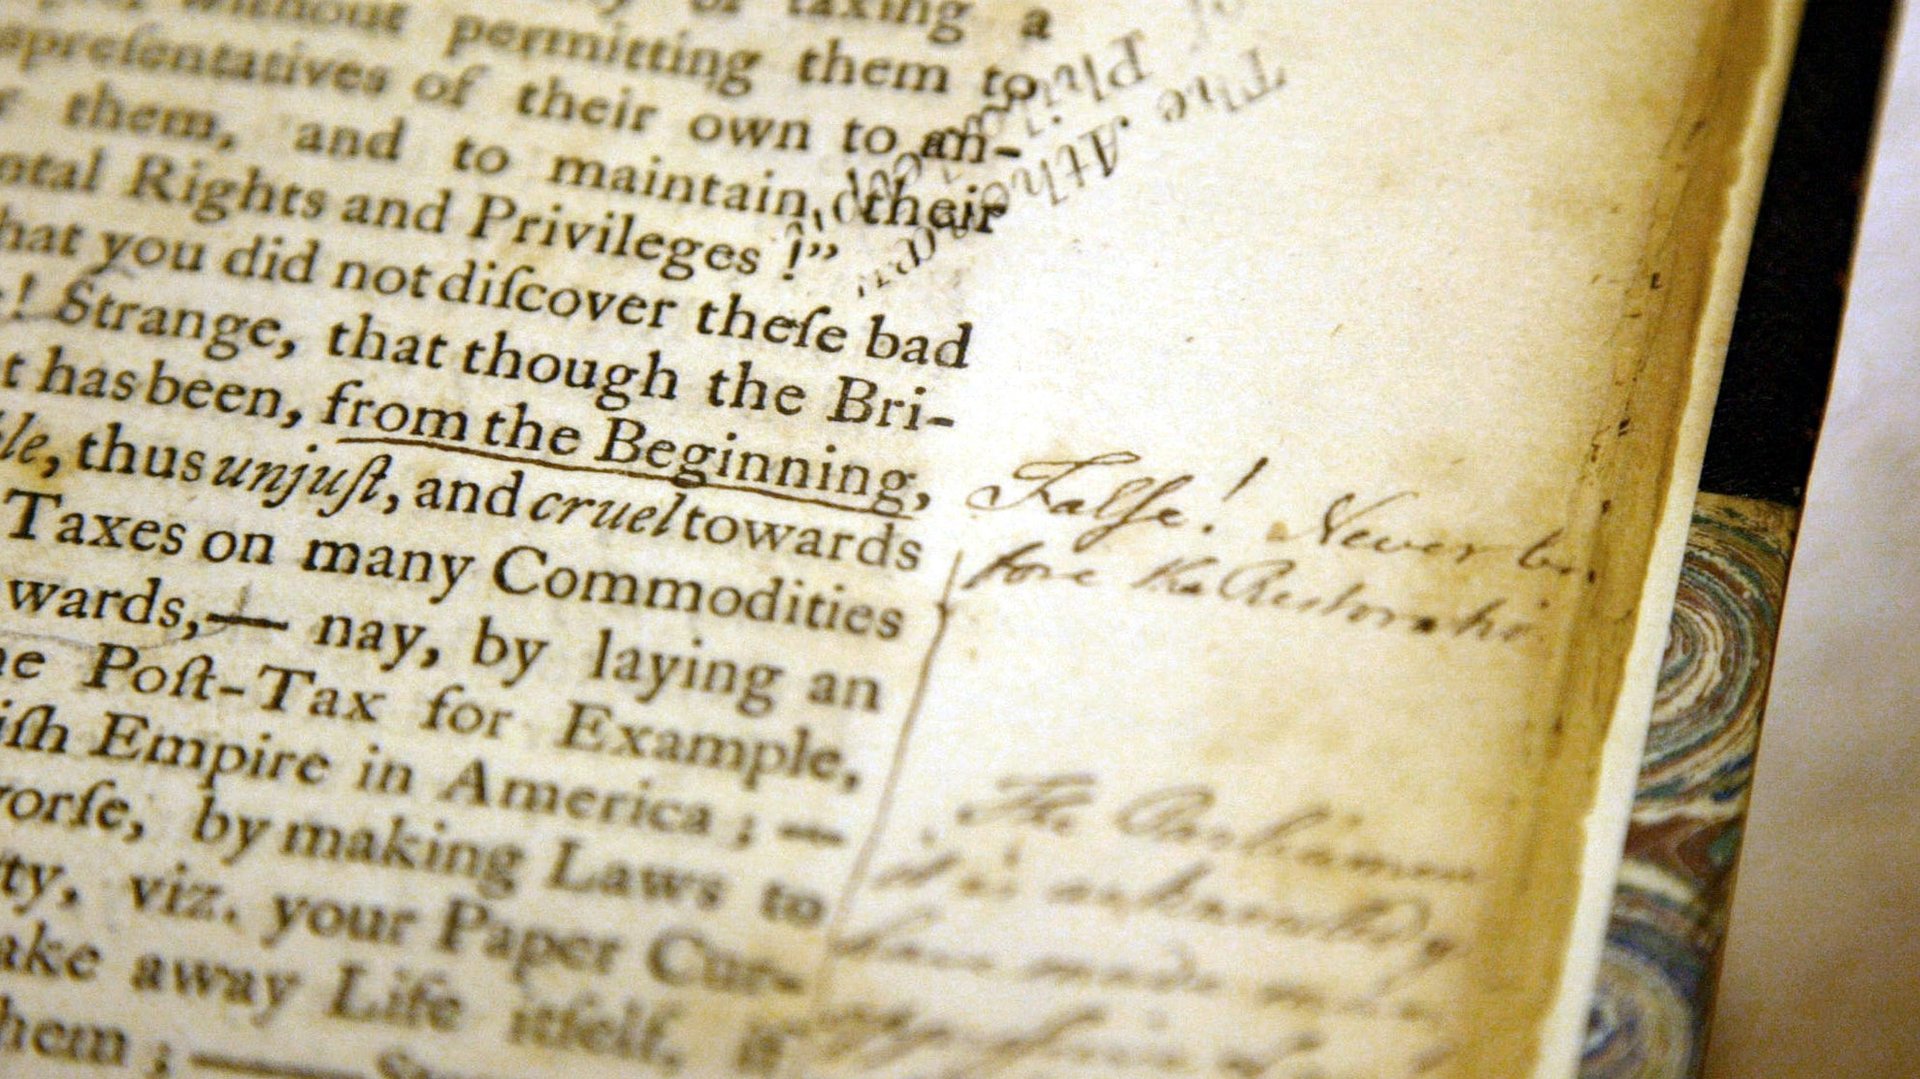 of taxing a
without permitting them to
epreſentatives of their own to an-
r them, and to maintain their
ntal Rights and Privileges !”
hat you did not diſcover theſe bad
! Strange, that though the Bri-
t has been, from the Beginning,
le, thus unjuſt, and cruel towards
Taxes on many Commodities
wards,— nay, by laying an
he Poſt-Tax for Example,
iſh Empire in America ; —
worſe, by making Laws to
ty, viz. your Paper Cur-
ake away Life itſelf, if
hem ; —
The Athenæum
Philadelphia
Falſe! Never be-
fore the Restoration
The Parliament
it is acknowledg
have made many
oppreſsive